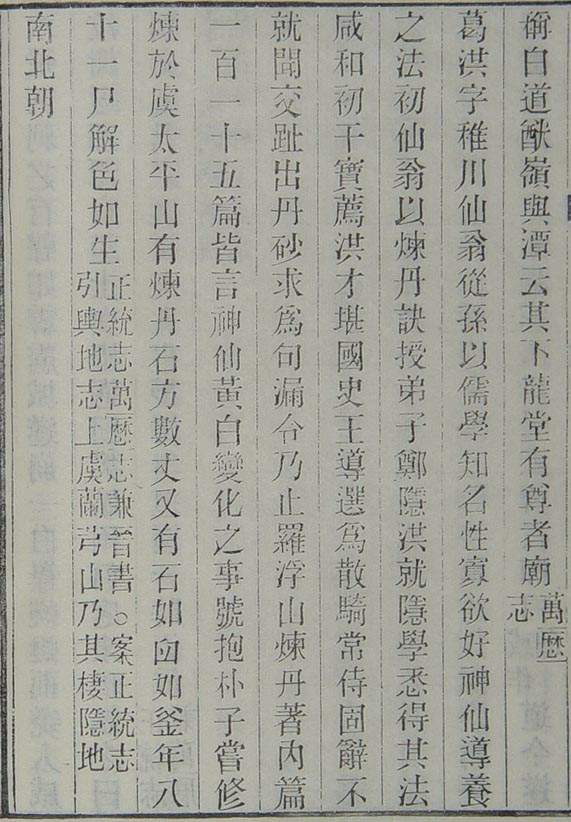 稱白道猷嶺與潭云其下龍堂有尊者廟萬歷志
葛洪字稚川仙翁從孫以儒學知名性寡欲好神仙導養
之法初仙翁以煉丹訣授弟子鄭隱洪就隱學悉得其法
咸和初干寶薦洪才堪國史王導選爲散騎常侍固辭不
就聞交趾出丹砂求爲句漏令乃止羅浮山煉丹著內篇
一百一十五篇皆言神仙黃白變化之事號抱朴子嘗修
煉於虞太平山有煉丹石方數丈又有石如臼如釜年八
十一尸解色如生正統志萬歷志兼晉書○案正統志
引輿地志上虞蘭芎山乃其棲隱地
南北朝